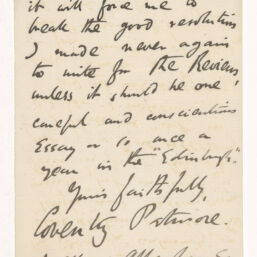 it will force me to
break the good resolution
I made never again
to write for the Reviews
unless it should be one
careful and conscientious
Essay or so, once a
year in the "Edinburgh".
Yours faithfully,
Coventry Patmore.